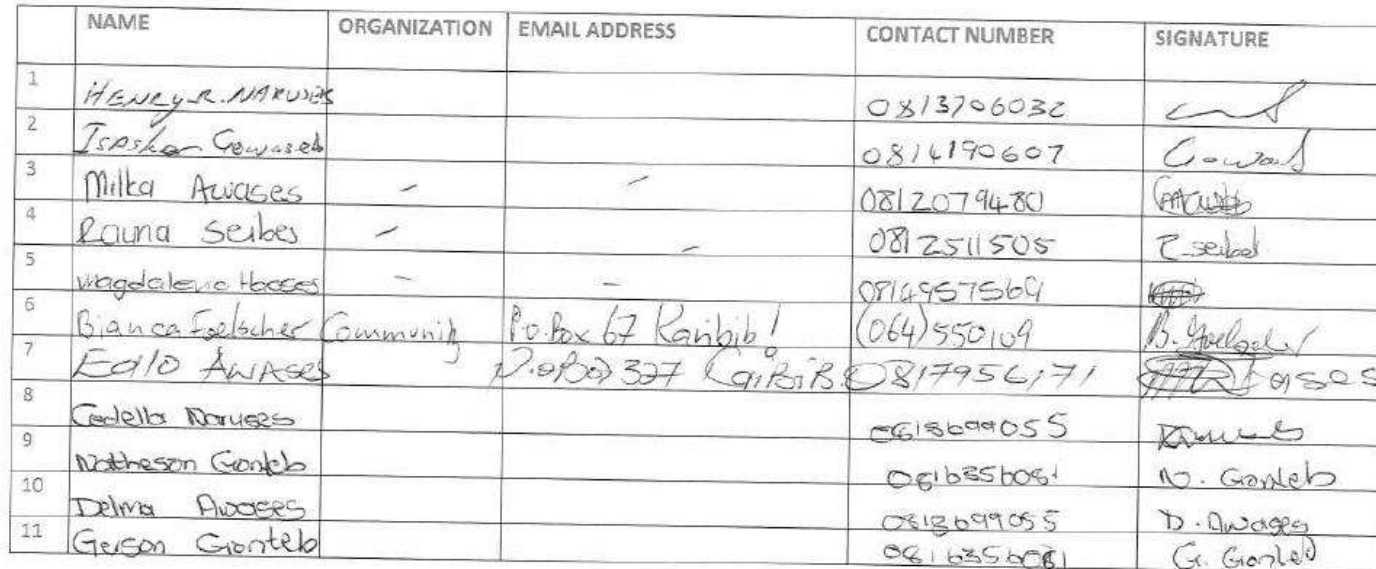 NAME ORGANIZATION EMAIL ADDRESS CONTACT NUMBER SIGNATURE
1 HENRY R. NARUSES 0813706032
2 Gowaseb 0814190607 Gowas
3 Milka Awases - - 0812079480
4 Rauna Seibes - - 0812511505 R. seibes
5 Magdalena Hoases - - 0814957569
6 Bianca Foelscher Community P.O. Box 67 Karibib! (064) 550109 B. Foelscher
7 Awases P.O Box 327 CariBiB. 0817956171
8 Cedella Naruses 0818699055
9 Natheson Gonteb 0816356081 N. Gonteb
10 Delma Awases 0818699055 D. Awases
11 Gerson Gonteb 0816356081 G. Gonteb